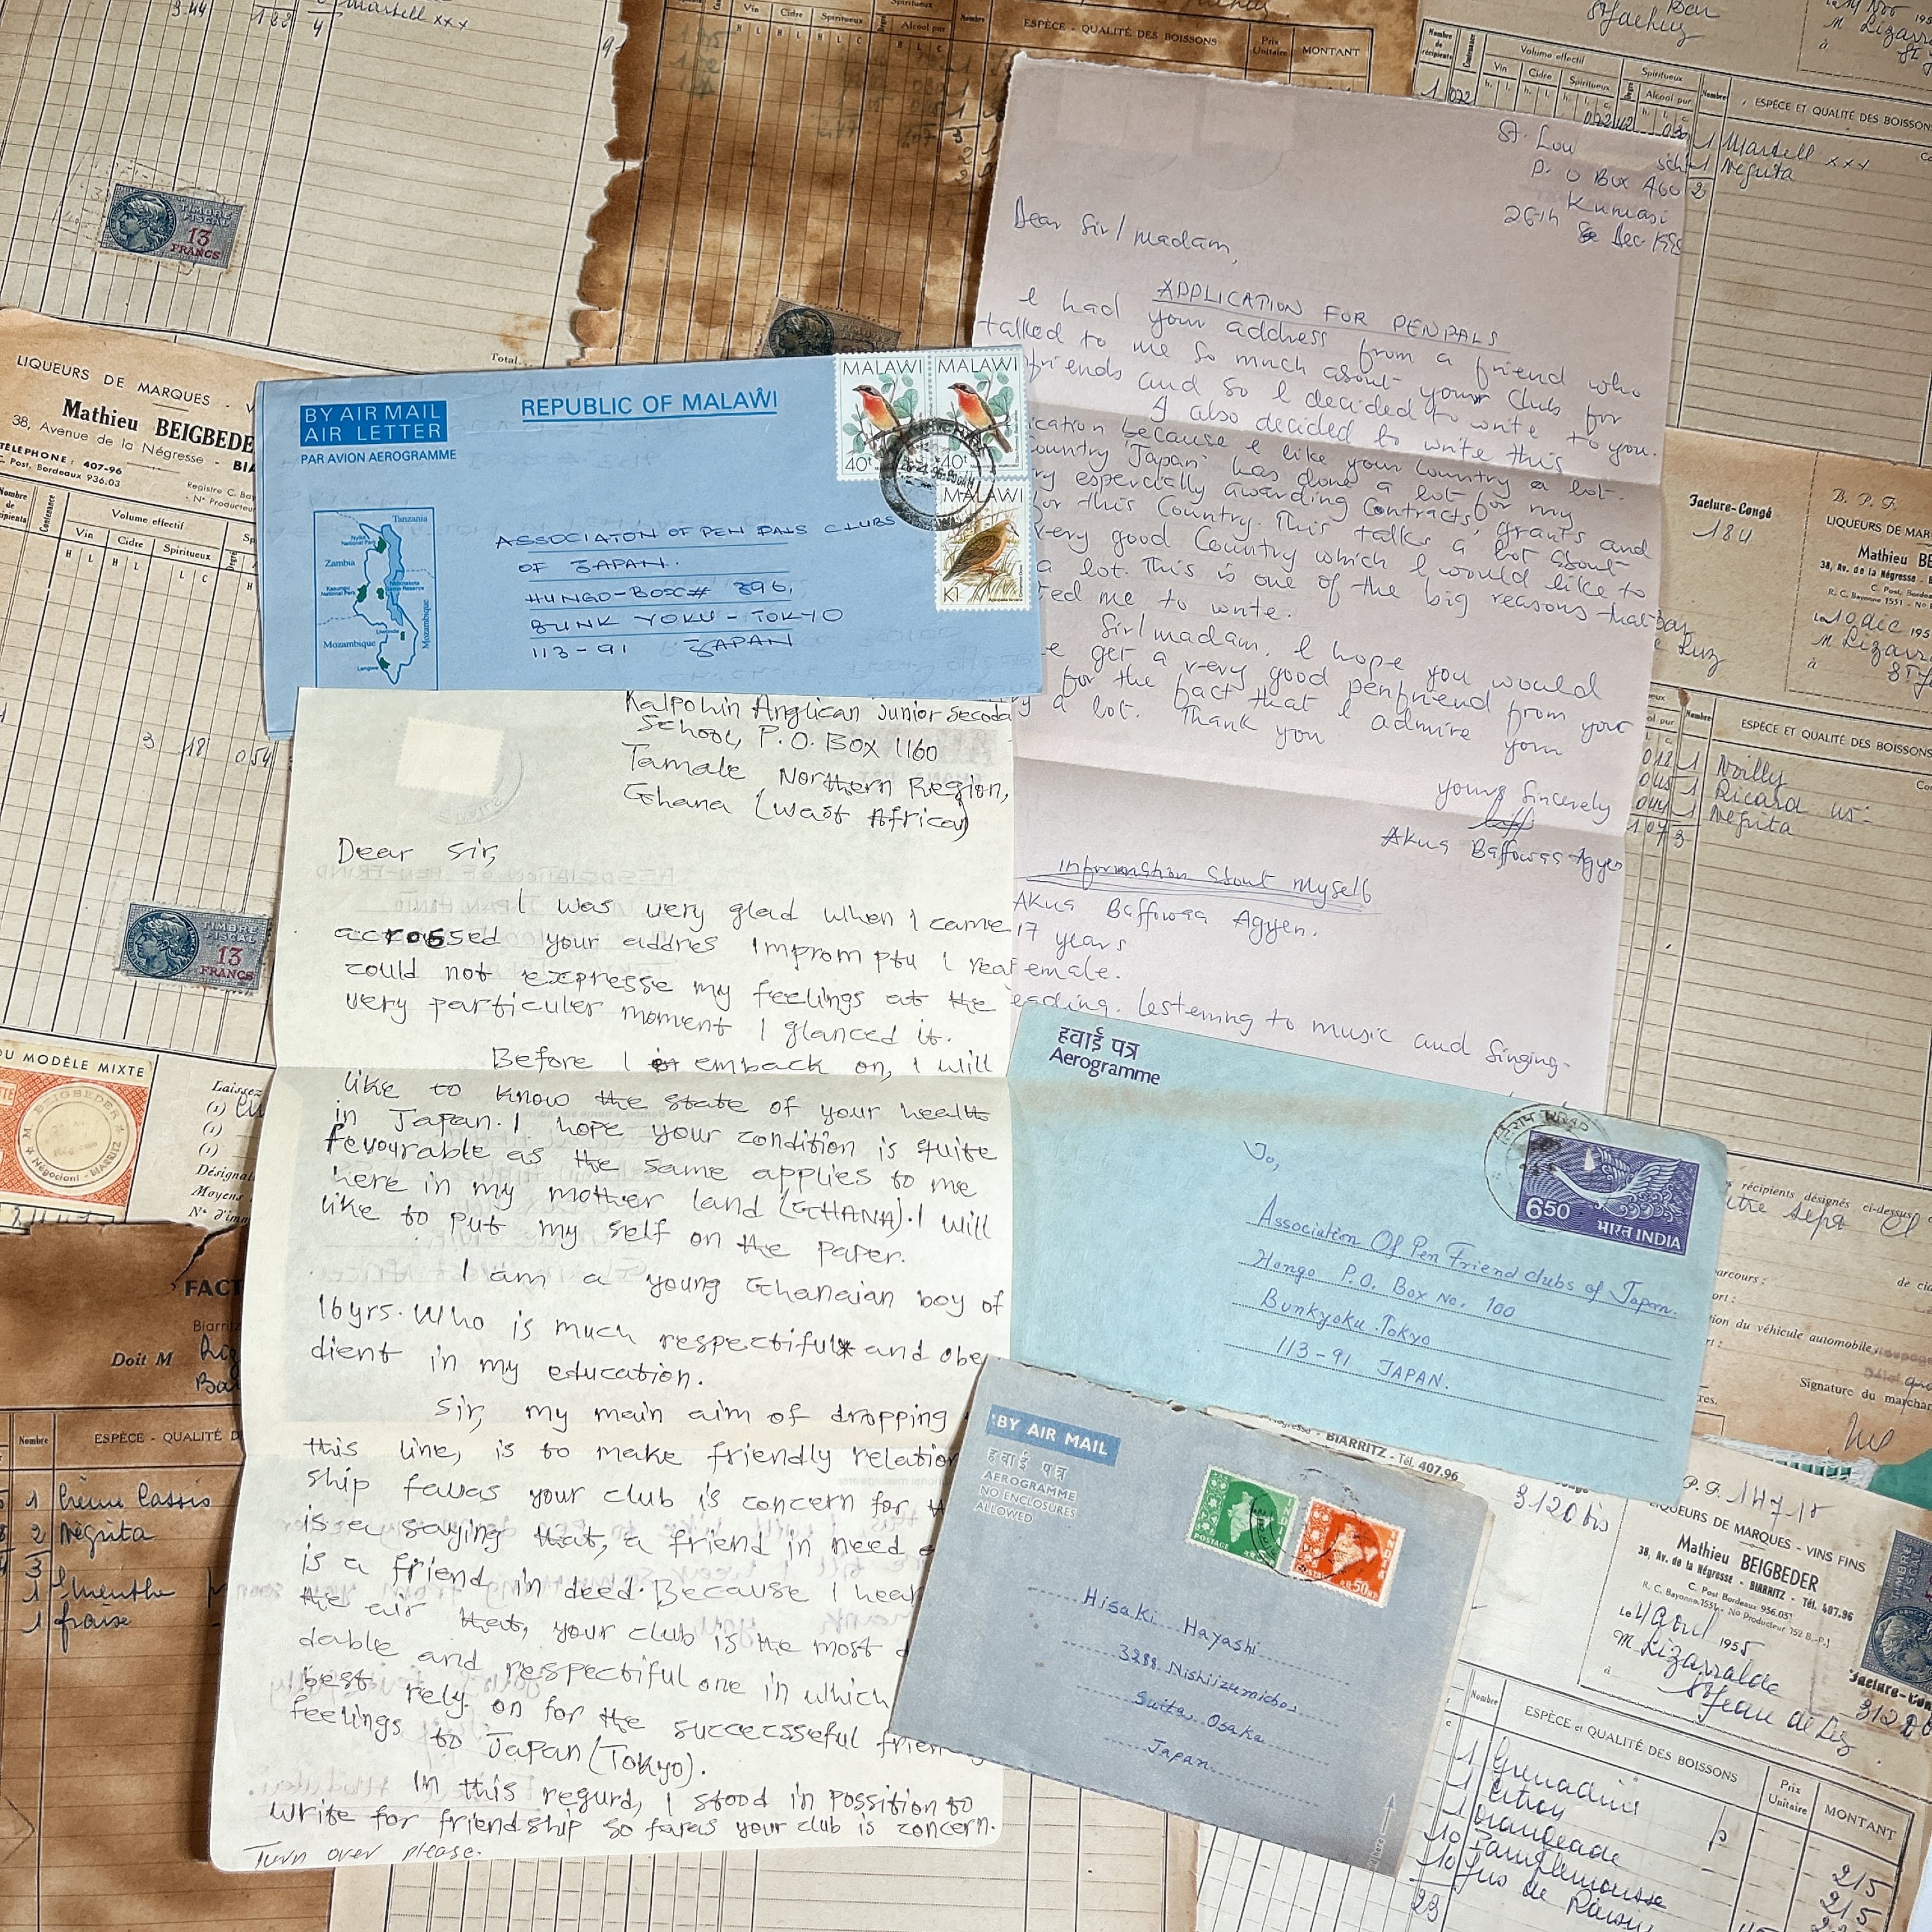 REPUBLIC OF MALAWI
BY AIR MAIL
AIR LETTER
PAR AVION AEROGRAMME
MALAWI
40t
MALAWI
40t
MALAWI
K1
Tanzania
Zambia
Mozambique
Mozambique
ASSOCIATON OF PEN PALS CLUBS
OF JAPAN.
HUNGO-BOX# 896,
BUNK YOKU - TOKYO
113-91 JAPAN
St. Lou
P. O Box A60
Kumasi
26th Dec
Dear Sir/madam,
APPLICATION FOR PENPALS
I had your address from a friend who
talked to me so much about your Club for
friends and so I decided to write to you.
I also decided to write this
ication because I like your Country a lot.
ountry 'Japan' has done a lot for my
ry especially awarding Contracts, grants and
for this Country. This talks a lot about
very good Country which I would like to
a lot. This is one of the big reasons that
ted me to write.
Sir/madam. I hope you would
e get a very good penfriend from your
for the fact that I admire your
y a lot. Thank you
yours Sincerely
Akua Baffowaa Agyen
Information about Myself
Akua Baffowaa Agyen.
17 years
emale.
eading. Lestening to music and Singing.
Kalpohin Anglican Junior Secoda
School, P.O. Box 1160
Tamale Northern Region,
Ghana (West Africa)
Dear Sir,
I was very glad when I came
acrossed your addres impromptu I rea
could not expresse my feelings at the
very particuler moment I glanced it.
Before I emback on, I will
like to know the state of your health
in Japan. I hope your condition is quite
fevourable as the same applies to me
here in my mother land (GHANA). I will
like to put my self on the paper.
I am a young Ghanaian boy of
16yrs. Who is much respectiful and obe
dient in my education.
Sir, my main aim of dropping
this line, is to make friendly relation
ship favas your club is concern for th
is a saying that, a friend in need
is a friend in deed. Because I hear
the air that, your club is the most d
dable and respectiful one in which
best rely on for the successeful frien
feelings to Japan (Tokyo).
In this regurd, I stood in possition to
write for friendship so faras your club is concern.
Turn over please.
हवाई पत्र
Aerogramme
To,
Association Of Pen Friend clubs of Japan.
Hongo P.O. Box No. 100
Bunkyoku.Tokyo
113-91 JAPAN.
650
भारत INDIA
BY AIR MAIL
हवाई पत्र
AEROGRAMME
NO ENCLOSURES
ALLOWED
POSTAGE
Hisaki Hayashi
3288 Nishiizumicho
Suita, Osaka
Japan
LIQUEURS DE MARQUES - V
Mathieu BEIGBEDE
38, Avenue de la Négresse - BIA
TELEPHONE : 407-96
C. Post. Bordeaux 936.03
Volume effectif
Vin Cidre Spiritueux
3 18 054
TIMBRE
FISCAL
13
FRANCS
TIMBRE
FISCAL
13
FRANCS
Total
Martell xxx
Vin Cidre Spiritueux
Alcool pur
ESPÈCE - QUALITÉ DES BOISSONS
Prix
Unitaire
MONTANT
Nombre
de
récipients
Volume effectif
Vin Cidre Spiritueux
Alcool pur
Nombre
ESPÈCE ET QUALITÉ DES BOISSONS
1 Martell xxx
1 Négrita
2
Facture-Congé
184
B. P. F.
LIQUEURS DE MARQUES
Mathieu BE
38, Av. de la Négresse - BIA
10 déc 195
Nombre
ESPÈCE ET QUALITÉ DES BOISSONS
1 Noilly
1 Ricard
1 Négrita
3
DU MODÈLE MIXTE
M. BEIGBEDER
Négociant - BIARRITZ
Laissez
FACT
Biarritz
Doit M
Nombre
ESPÈCE - QUALITÉ D
1 Crème Cassis
2 Négrita
3
1 Menthe
1 fraise
récipients désignés ci-dessus
ion du véhicule automobile
Signature du march
BIARRITZ - Tél. 407.96
3120 bis
P. F. 14718
LIQUEURS DE MARQUES - VINS FINS
Mathieu BEIGBEDER
38, Av. de la Négresse - BIARRITZ - Tél. 407.96
C. Post Bordeaux 936.03
Le 4 avril 1955
M Lizarralde
St Jean de Luz
Facture-Con
Nombre
ESPÈCE et QUALITÉ DES BOISSONS
Prix
Unitaire
MONTANT
1 Grenadine
1 Citron
1 Orangeade
10 Pamplemousse
10 Jus de Raisin
23
215
215